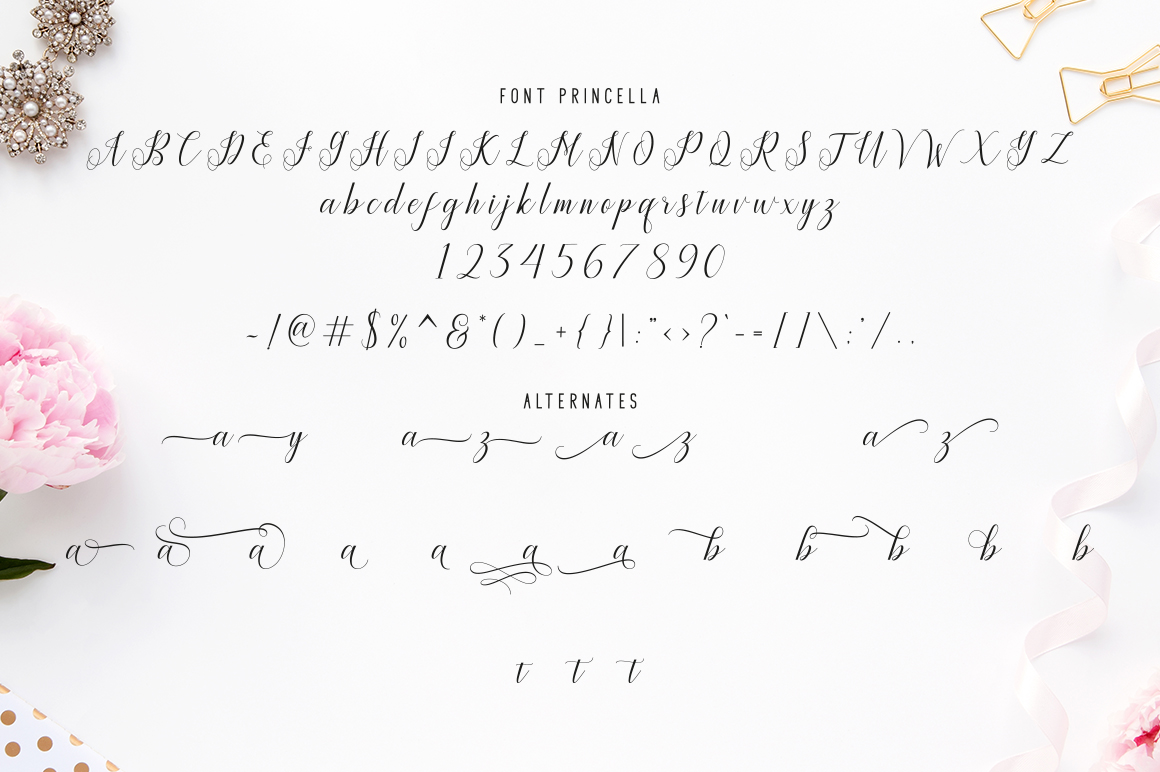 FONT PRINCELLA
A B C D E F G H I J K L M N O P Q R S T U V W X Y Z
a b c d e f g h i j k l m n o p q r s t u v w x y z
1 2 3 4 5 6 7 8 9 0
~ ! @ # $ % ^ & * ( ) _ + { } | : " < > ? ` - = [ ] \ ; ' / . ,
ALTERNATES
a y a z a z a z
a a a a a a a b b b b b
t t t